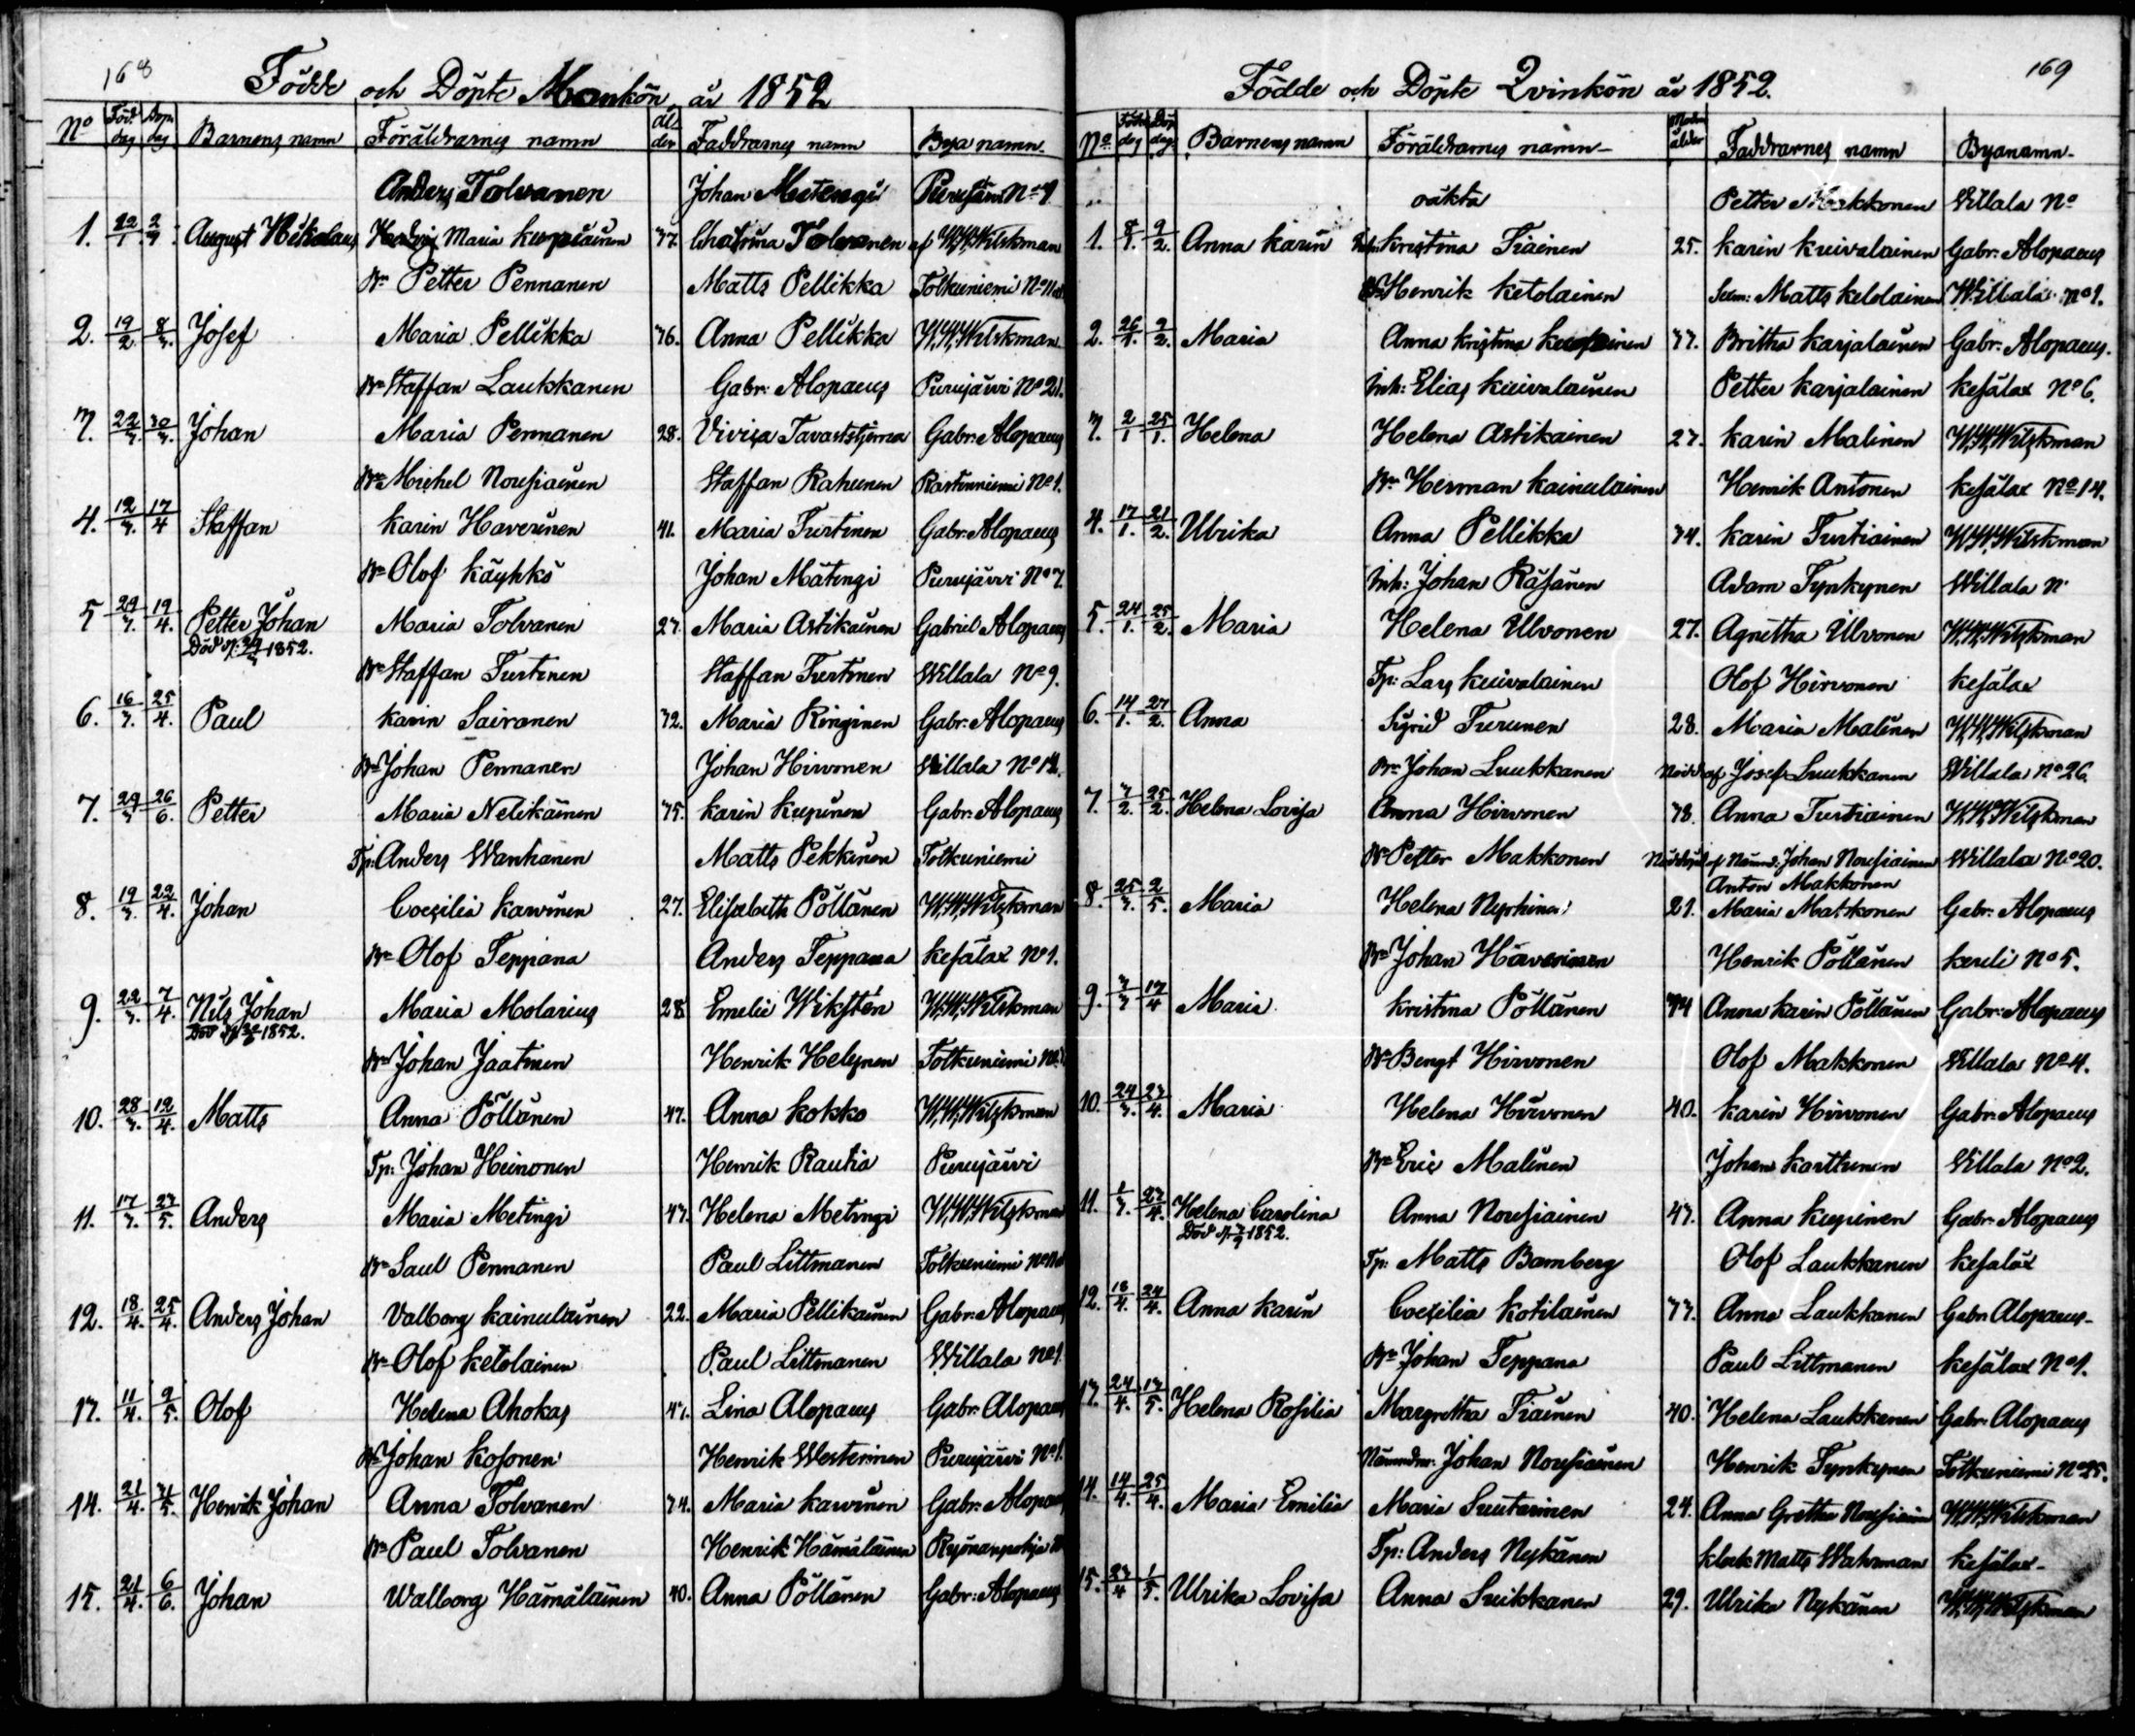 168
Födde och Döpte Mankön år 1852
No Föd. dag Döp. dag Barnens namn Föräldrarnes namn ål der Faddrarnes namn Bya namn
Anders Tolvanen Johan Purujärvi No
1. 22/1 August Maria 37. Tolvanen af W.W. Wilskman
Bn Petter Pennanen Matts Pellikka Tolkuniemi No 11
2. 19/2. 8/3. Josef Maria Pellikka 36. Anna Pellikka W.W. Wilskman
Bn Staffan Laukkanen Gabr: Alopaeus Purujärvi No 21.
3. 22/3. 30/3. Johan Maria Pennanen 28. Viviça Tavaststjerna Gabr: Alopaeus
Bn Michel Nousiainen Staffan Rahunen Rastinniemi No 1.
4. 12/3. 17/4 Staffan Karin Haverinen 41. Maria Turtinen Gabr: Alopaeus
Bn Olof Käyhkö Johan Mätingi Purujärvi No 3
5 29/3. 19/4. Petter Johan Maria Tolvanen 27. Maria Astikainen Gabriel Alopaeus
Död d. 1852.
Bn Staffan Turtinen Staffan Turtinen Villala No 9.
6. 16/3. 25/4. Paul Karin Sairanen 32. Maria Ringinen Gabr: Alopaeus
Bn Johan Pennanen Johan Hirvonen Villala No 12.
7. 29/3 26/6. Petter Maria Nelikäinen 35. Karin Kupinen Gabr: Alopaeus
Tp: Anders Wanhanen Matts Pekkinen Tolkuniemi
8. 19/3. 22/4. Johan Coecilia Karvinen 27. Elisabeth Pöllänen W.W. Wilskman
Bn Olof Teppana Anders Teppana Kesälax No 1.
9. 22/3. 7/4. Nils Johan Maria Molarius 28 Emelie Wikstén W.W. Wilskman
Död 1852.
Bn Johan Jaatinen Henrik Helynen Tolkuniemi No
10. 28/3. 12/4. Matts Anna Pöllänen 47. Anna Kokko W.W. Wilskman
Tp: Johan Heinonen Henrik Rautia Purujärvi
11. 17/3. 23/5. Anders Maria Metingi 43. Helena Metingi W.W. Wilskman
Bn Saul Pennanen Paul Littmanen Tolkuniemi No
12. 18/4. 25/4. Anders Johan Valborg Kainulainen 22. Maria Pellikainen Gabr: Alopaeus
Bn Olof Ketolainen Paul Littmanen Villala No 1
13. 11/4. 9/5. Olof Helena Ahokas 41. Lina Alopaeus Gabr: Alopaeus
Bn Johan Kosonen Henrik Westerinen Purujärvi No 1.
14. 21/4. 31/5. Henrik Johan Anna Tolvanen 34. Maria Karvinen Gabr: Alopaeus
Bn Paul Tolvanen Henrik Hämäläinen
15. 21/4. 6/6. Johan Walborg Hämäläinen 40. Anna Pöllänen Gabr: Alopaeus
169
Födde och Döpte Qvinkön år 1852.
No Föd. dag Döp. dag Barnens namn Föräldrarnes namn Moders ålder Faddrarnes namn Byanamn
oäkta Petter Makkonen Villala No
1. 8/1. 9/2. Anna Karin Kristina Tiainen 25. Karin Kuivalainen Gabr: Alopaeus
Bn Henrik Ketolainen Matts Ketolainen Villala No 1.
2. 26/1. 9/2. Maria Anna Kristina 37. Britha Karjalainen Gabr: Alopaeus.
Inh: Elias Kuivalainen Petter Karjalainen Kesälax No 6.
3. 2/1 25/1. Helena Helena Astikainen 27. Karin Malinen W.W. Wilskman
Bn Herman Kainulainen Henrik Antonen Kesälax No 14.
4. 17/1. 21/2. Ulrika Anna Pellikka 34. Karin Turtiainen W.W. Wilskman
Inh: Johan Räsänen Adam Tynkynen Villala N
5. 24/1. 25/2. Maria Helena Ulvonen 27. Agnetha Ulvonen W.W. Wilskman
Tp: Lars Kuivalainen Olof Hirvonen Kesälax
6. 14/1. 27/2. Anna Sigrid Turunen 28. Maria Malinen W.W. Wilskman
Bn Johan Luukkanen af Josef Luukkanen Villala No 26.
7. 3/2. 25/2. Helena Lovisa Anna Hirvonen 38. Anna Turtiainen W.W. Wilskman
Bn Petter Makkonen Nöddöpt af Nämd: Johan Nousiainen Villala No 20.
Anton Makkonen
8. 25/3. 2/5. Maria Helena 21. Maria Makkonen Gabr: Alopaeus
Bn Johan Haverinen Henrik Pöllänen No 5.
9. 3/3 17/4 Maria Kristina Pöllänen 34 Anna Karin Pöllänen Gabr: Alopaeus
Bn Bengt Hirvonen Olof Makkonen Villala No 4.
10. 24/3. 23/4. Maria Helena Hirvonen 40. Karin Hirvonen Gabr: Alopaeus
Bn Eric Malinen Johan Karttunen Villala No 2.
11. 1/3. 23/4. Helena Carolina Anna Nousiainen 43. Anna Kupinen Gabr: Alopaeus
Död 1852.
Tp: Matts Bamberg Olof Laukkanen Kesälax
12. 18/4. 24/4. Anna Karin Coecilia Kotilainen 33. Anna Laukkanen Gabr: Alopaeus
Bn Johan Teppana Paul Littmanen Kesälax No 1.
13. 24/4. 13/5. Helena Rosilia Margretha Tiainen 40. Helena Laukkanen Gabr: Alopaeus
Nämndm: Johan Nousiainen Henrik Tynkynen Tolkuniemi No 25.
14. 14/4. 25/4. Maria Emilia Maria Suutarinen 24. Anna Gretha Nousiainen W.W. Wilskman
Tp: Anders Nykänen Klock: Matts Wahrman Kesälax
15. 23/4 1/5. Ulrika Lovisa Anna Suikkanen 29. Ulrika Nykänen W.W. Wilskman